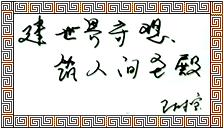 建世界奇观
筑人间圣殿